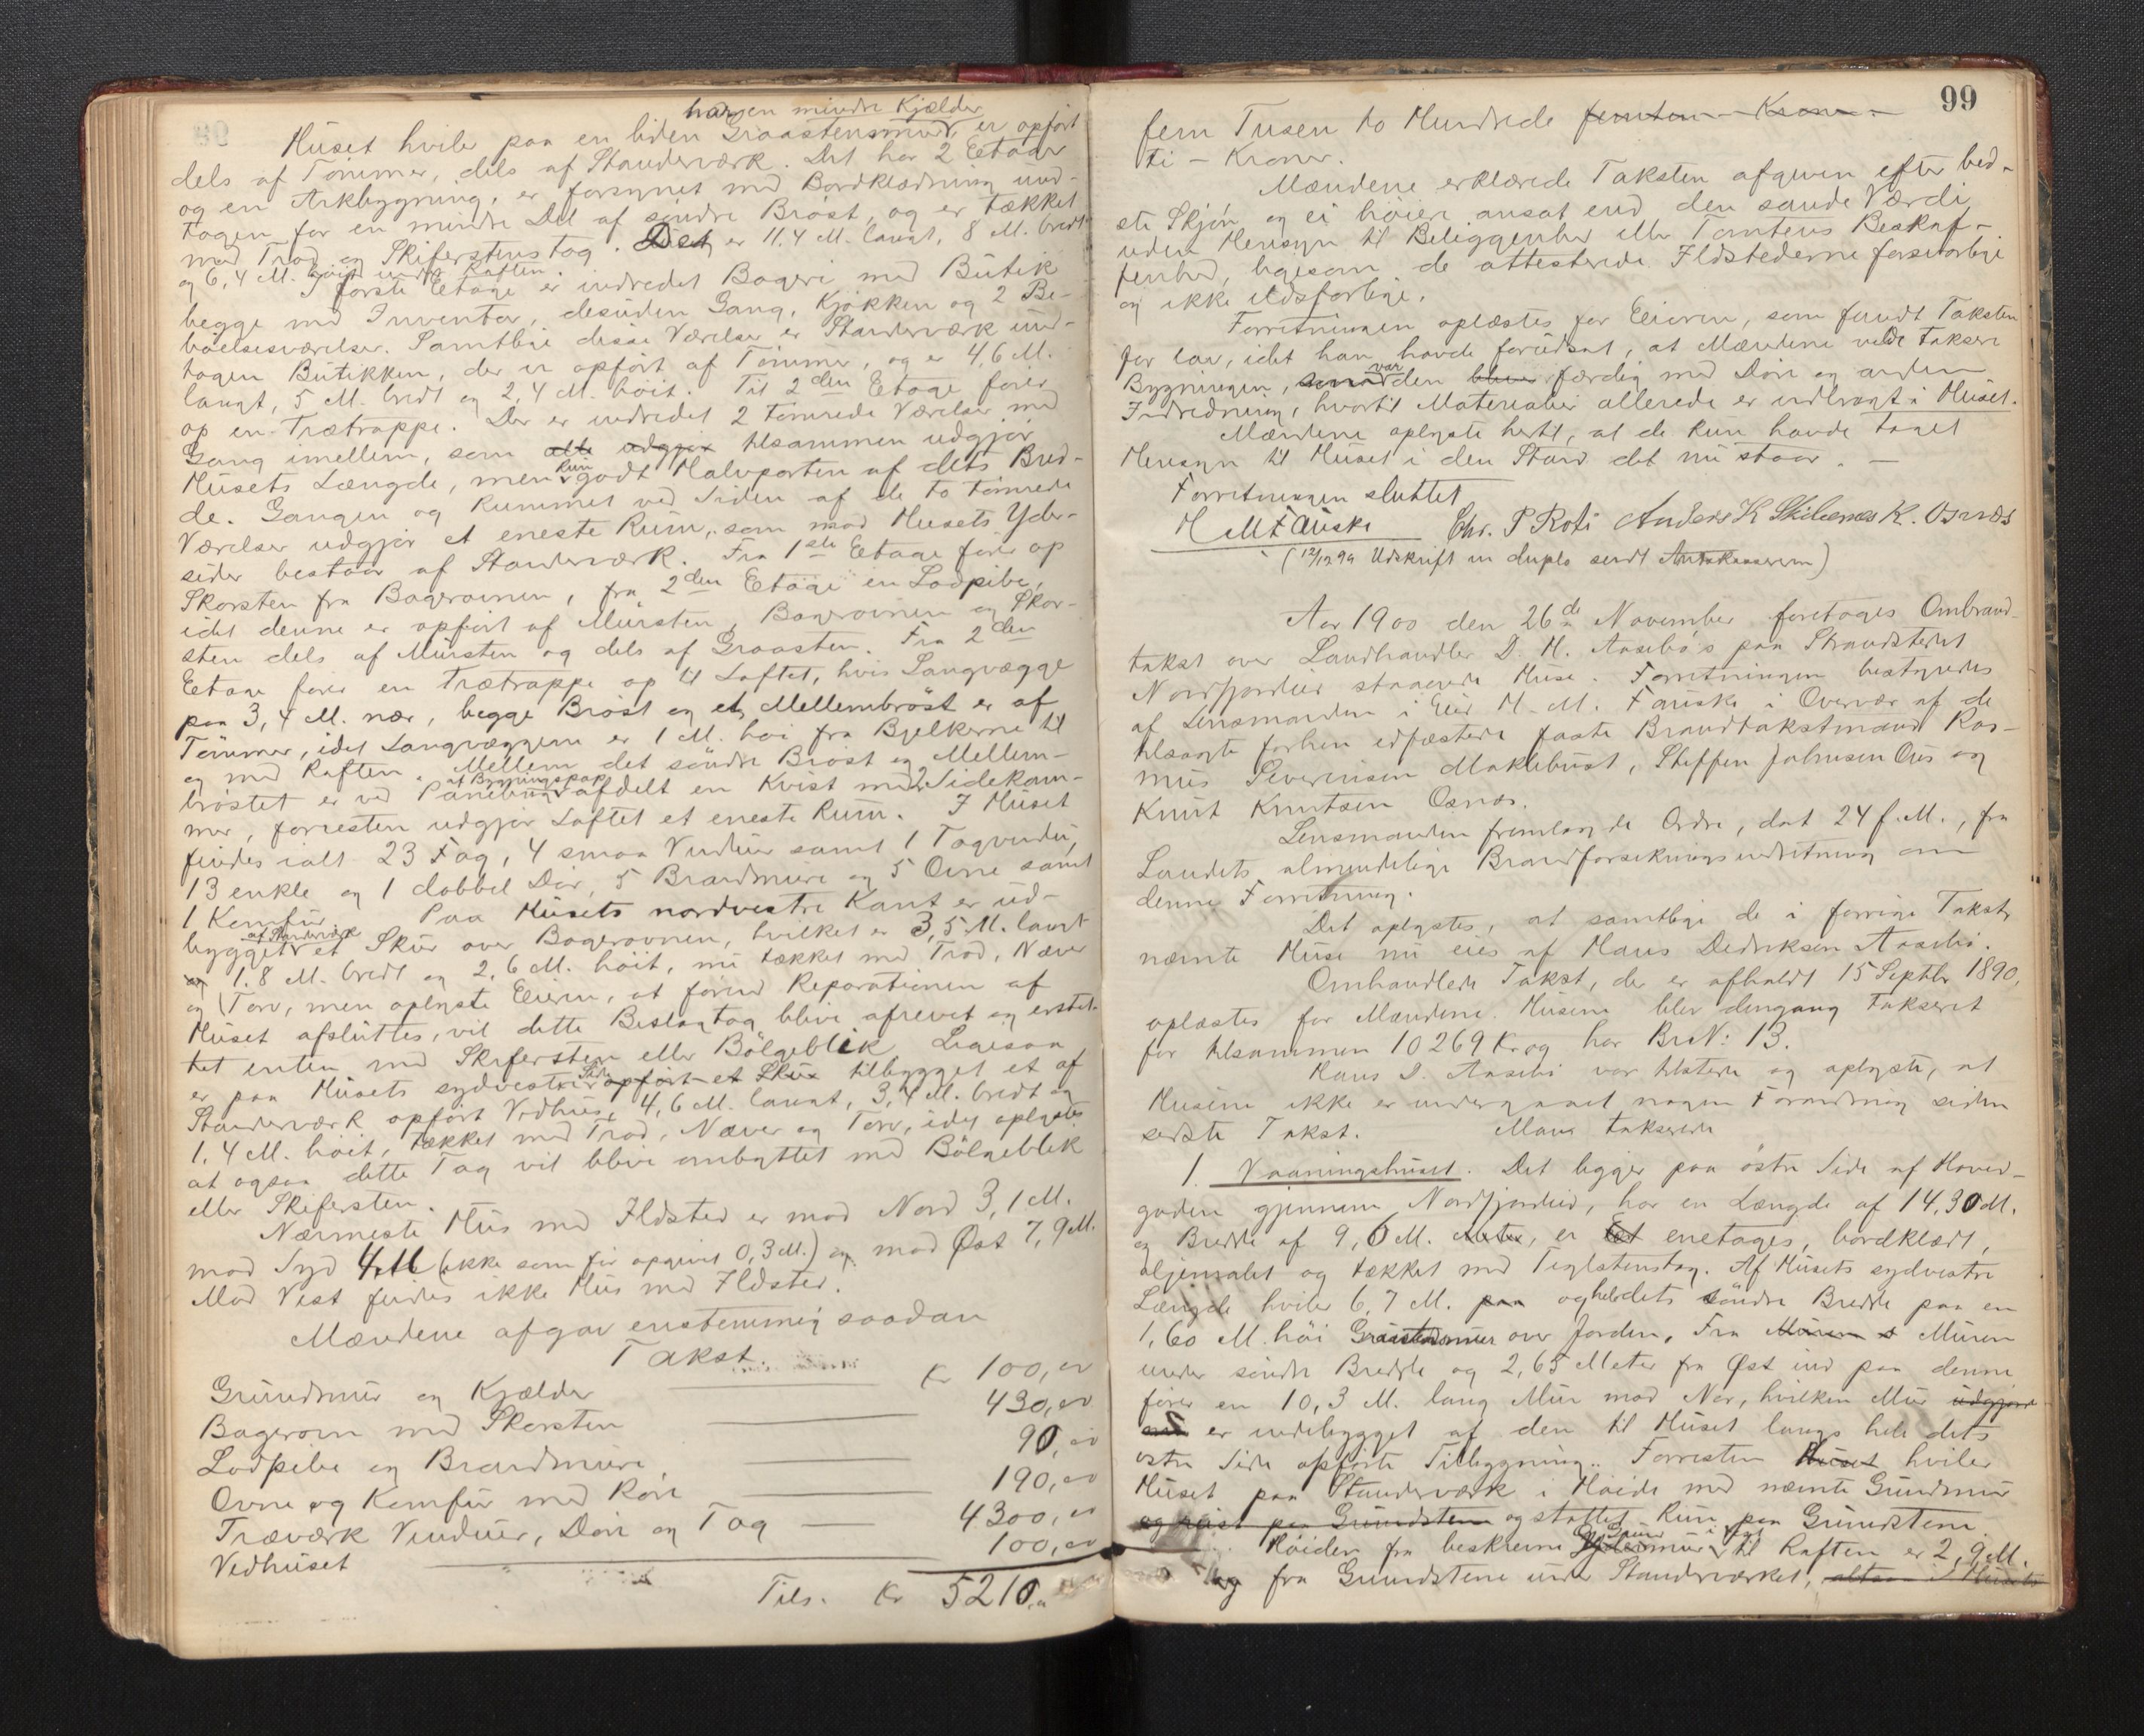 har en mindre Kjælder
Huset hviler paa en liden Graastensmur, er opført
dels af Tømmer, dels af Standerværk. Det har 2 Etager
og en Arkbygning, er forsynet med Bordklædning und-
tagen for en mindre Del af søndre Brøst, og er tækket
med Trod og Skiferstenstag. Det er 11.4 M. langt, 8 M. bredt
og 6,4 M. høit under Raften.
I første Etage er indredet Bageri med Butik
begge med Inventar, desuden Gang, Kjøkken og 2 Be-
boelsesværelser. Samtlige disse Værelser er Standerværk und-
tagen Butikken, der er opført af Tømmer, og er 4,6 M.
langt, 5 M. bredt og 2,4 M. høit. Til 2den Etage fører
op en Trætrappe. Der er indredet 2 tømrede Værelser med
Gang imellem, som alle udgjør tilsammen udgjør
Husets Længde, men kun godt Halvparten af dets Bred-
de. Gangen og Rummet ved Siden af de to tømrede
Værelser udgjør et eneste Rum, som mod Husets Yder-
sider bestaar af Standerværk. Fra 1ste Etage fører op
Skorsten fra Bagerovnen, fra 2den Etage en Lodpibe,
idet denne er opført af Mursten, Bagerovnen og Skor-
sten dels af Mursten og dels af Graasten. Fra 2den
Etage fører en Trætrappe op til Loftet, hvis Langvægge
paa 3,4 M. nær, begge Brøst og et Mellembrøst er af
Tømmer, idet Langvæggene er 1 M. høi fra Bjelkerne til
og med Raften. Mellem det søndre Brøst og Mellem-
brøstet er ved Paneling af Bygningspap afdelt en Kvist med 2 Sidekam-
mer, forresten udgjør Loftet et eneste Rum. I Huset
findes ialt 23 Fag, 4 smaa Vinduer samt 1 Tagvindu,
13 enkle og 1 dobbel Dør, 5 Brandmure og 5 Ovne samt
1 Komfur. Paa Husets nordvestre Kant er ud-
bygget af Standerværk et Skur over Bagerovnen, hvilket er 3,5 M. langt
og 1.8 M. bredt og 2,6 M. høit, nu tækket med Trod, Næver
og Torv, men oplyste Eieren, at førend Reparationen af
Huset afsluttes, vil dette Beslagtag blive afrevet og erstat-
tet enten med Skifersten eller Bølgeblik. Ligesaa
er paa Husets sydvestre Side opført et Skur tilbygget et af
Standerværk opført Vedhus, 4,6 M. langt, 3,4 M. bredt og
1.4 M. høit, tækket med Trod, Næver og Torv, idet oplystes
at ogsaa dette Tag vil blive ombyttet med Bølgeblik
eller Skifersten.
Nærmeste Hus med Ildsted er mod Nord 3,1 M.
mod Syd 4 M (ikke som før opgivet 0,3 M.) og mod Øst 7,9 M.
Mod Vest findes ikke Hus med Ildsted.
Mændene afgav enstemmig saadan
Takst.
Grundmur og Kjælder Kr 100,00
Bagerovn med Skorsten 430,00
Lodpibe og Brandmure 90,00
Ovne og Komfur med Rør 190,00
Træværk Vinduer, Døre og Tag 4300,00
Vedhuset 100,00
Tils. Kr 5210,00
99
fem Tusen to Hundrede femten Kroner
ti - Kroner.
Mændene erklærede Taksten afgiven efter bed-
ste Skjøn og ei høiere ansat end den sande Værdi
uden Hensyn til Beliggenhed eller Tomtens Beskaf-
fenhed, ligesom de attesterede Ildstederne forsvarlige
og ikke ildsfarlige.
Forretningen oplæstes for Eieren, som fandt Taksten
for lav, idet han havde forudsat, at Mændene vilde taksere
Bygningen, som var den blev færdig med Døre og anden
Indredning, hvortil Materialier allerede er indbragt i Huset.
Mændene oplyste hertil, at de kun havde taget
Hensyn til Huset i den Stand det nu staar. —
Forretningen sluttet
H M Fauske Chr. P Roti Anders K Skibenes K. Osnæs
(12/12 99 Udskrift in duplo sendt Amtskassereren)
Aar 1900 den 26de November foretoges Ombrand-
takst over Landhandler D. H. Aasebø's paa Strandstedet
Nordfjordeid staaende Huse. Forretningen bestyredes
af Lensmanden i Eid H. M. Fauske i Overvær af de
tilsagte forhen edfæstede faste Brandtakstmænd Ras-
mus Severinsen Maklebust, Steffen Johnsen Os og
Knut Knutsen Osnæs.
Lensmanden fremlagde Ordre, dat 24 f. M., fra
Landets almindelige Brandforsikringsindretning om
denne Forretning.
Det oplystes, at samtlige de i forrige Takst
nævnte Huse nu eies af Hans Dedriksen Aasebø.
Omhandlede Takst, der er afholdt 15 Septbr 1890,
oplæstes for Mændene. Husene blev dengang takseret
for tilsammen 10269 Kr og har Br. N: 13.
Hans D. Aasebø var tilstede og oplyste, at
Husene ikke er undergaaet nogen Forandring siden
sidste Takst. Man takserede
1. Vaaningshuset. Det ligger paa østre Side af Hoved-
gaden gjennem Nordfjordeid, har en Længde af 14,30 M.
og Bredde af 9,6 M. Meter, er et enetages, bordklædt,
oljemalet og tækket med Teglstenstag. Af Husets sydvestre
Længde hviler 6,7 M. paa og hele dets søndre Bredde paa en
1,60 M. høi Graastensmur over Jorden. Fra Muren
under søndre Bredde og 2,65 Meter fra Øst ind paa denne
fører en 10,3 M. lang Mur mod Nor, hvilken Mur udgjør
nu er indebygget af den til Huset langs hele dets
østre Side opførte Tilbygning. Forresten Huset hviler
Huset paa Standerværk i Høide med nævnte Grundmur
og reist paa Grundstene og støttet kun paa Grundstene.
Høiden fra beskrevne Grundmur til Raften er 2,9 M.
og fra Grundstene under Standerværket, altsaa i Husets